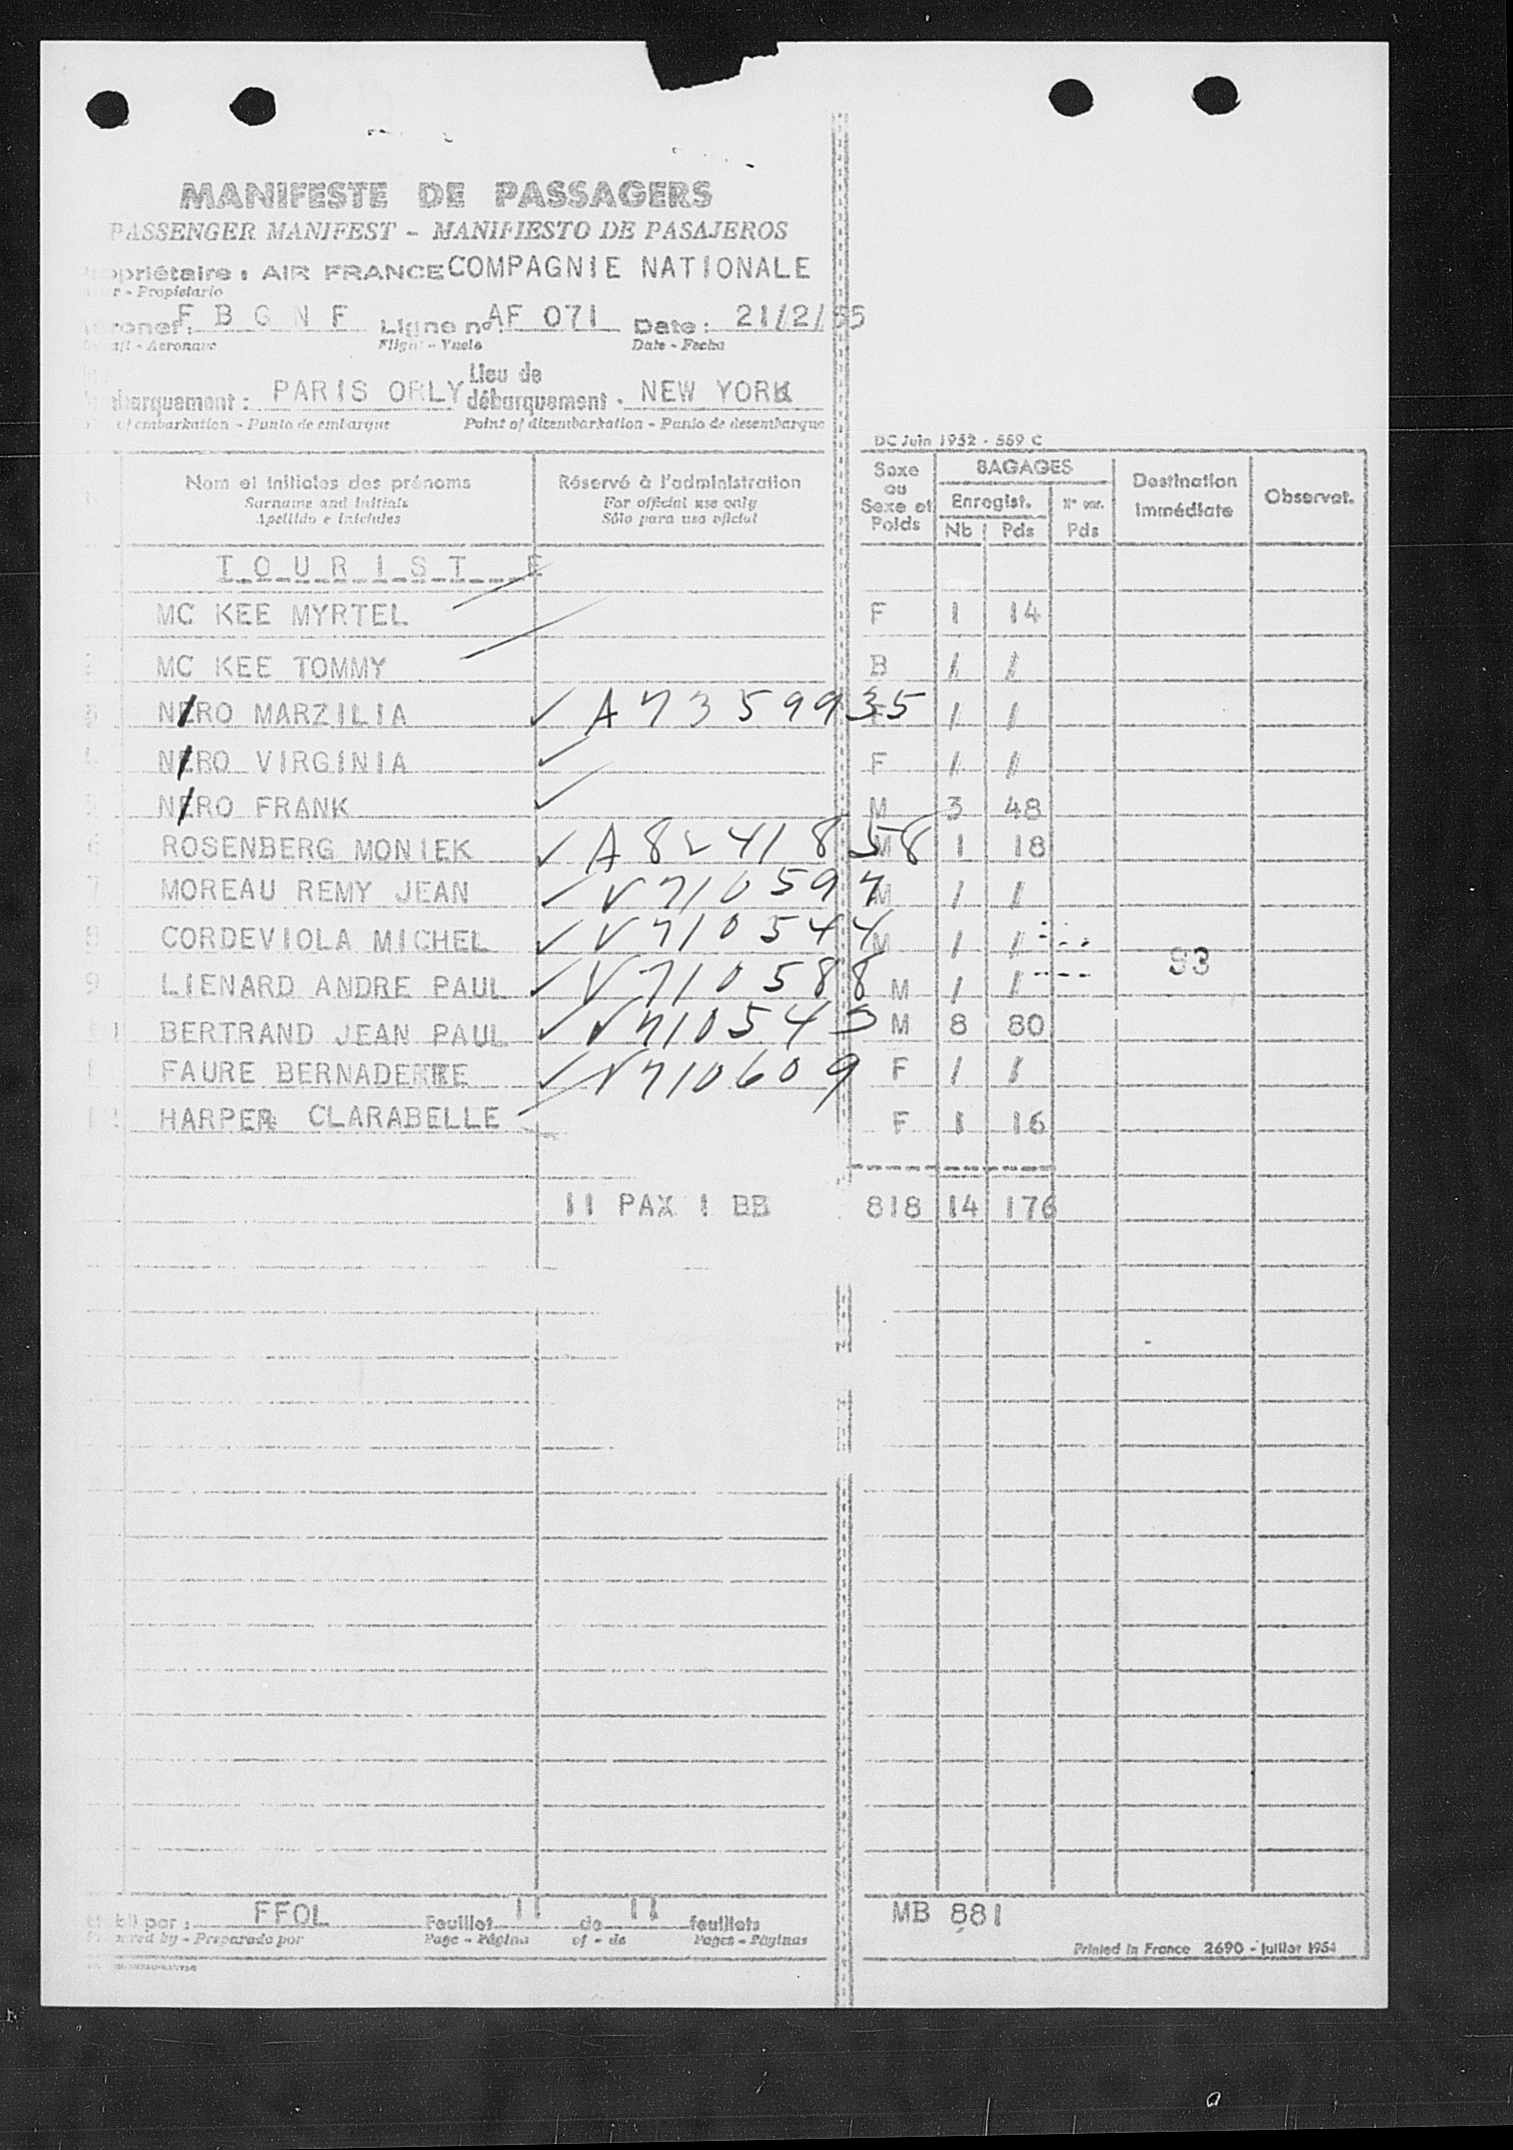 MANIFESTE DE PASSAGERS
PASSENGER MANIFEST - MANIFIESTO DE PASAJEROS
opriétaire : AIR FRANCE COMPAGNIE NATIONALE
r - Propietario
F B G N F Ligne no AF 071 Date : 21/2/55
Aeronave Flight - Vuelo Date - Fecha
Lieu de
barquement : PARIS ORLY débarquement : NEW YORK
of embarkation - Punto de embarque Point of disembarkation - Punto de desembarque
DC Juin 1952 - 559 C
Nom et initiales des prénoms Réservé à l'administration Sexe ou Sexe et Poids BAGAGES Destination immédiate Observat.
Surname and initials For official use only Enregist. Nb Pds
Apellido e iniciales Sólo para uso oficial Pds
T O U R I S T E
MC KEE MYRTEL F 1 14
MC KEE TOMMY B / /
NERO MARZILIA ✓ A7359935 F / /
NERO VIRGINIA ✓ F / /
5 NERO FRANK ✓ M 3 48
6 ROSENBERG MONIEK ✓ A8241858 M 1 18
7 MOREAU REMY JEAN ✓ V710597 M / /
8 CORDEVIOLA MICHEL ✓ V710544 M / /
9 LIENARD ANDRE PAUL ✓ V710588 M / / 93
BERTRAND JEAN PAUL ✓ V710545 M 8 80
FAURE BERNADETTE ✓ V710609 F / /
12 HARPER CLARABELLE F 1 16
11 PAX 1 BB 818 14 176
bli par : FFOL Feuillet 11 de 11 feuillets MB 881
red by - Preparado por Page - Página of - de Pages - Páginas
Printed in France 2690 - Juillet 1954